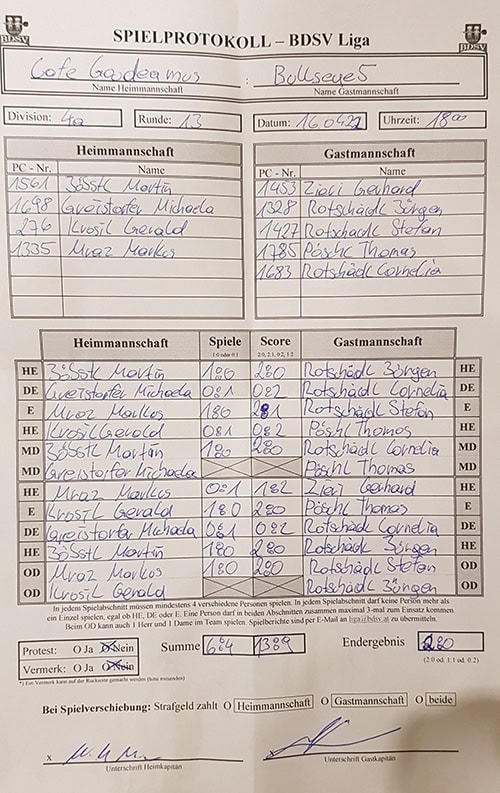 BDSV
BDSV
SPIELPROTOKOLL – BDSV Liga
Cafe Gaudeamus : Bullseye 5
Name Heimmannschaft Name Gastmannschaft
Division: 4a Runde: 13 Datum: 16.04.21 Uhrzeit: 18:00
Heimmannschaft Gastmannschaft
PC - Nr. Name PC - Nr. Name
1561 Bösstl Martin 1453 Ziari Gerhard
1698 Greistorfer Michaela 1328 Rotschädl Jürgen
276 Krosil Gerald 1427 Rotschädl Stefan
1335 Mraz Markus 1785 Pöschl Thomas
1683 Rotschädl Cornelia
Heimmannschaft Spiele Score Gastmannschaft
1:0 oder 0:1 2:0, 2:1, 0:2, 1:2
HE Bösstl Martin 1:0 2:0 Rotschädl Jürgen HE
DE Greistorfer Michaela 0:1 0:2 Rotschädl Cornelia DE
E Mraz Markus 1:0 2:1 Rotschädl Stefan E
HE Krosil Gerald 0:1 0:2 Pöschl Thomas HE
MD Bösstl Martin 1:0 2:0 Rotschädl Cornelia MD
MD Greistorfer Michaela Pöschl Thomas MD
HE Mraz Markus 0:1 1:2 Ziari Gerhard HE
E Krosil Gerald 1:0 2:0 Pöschl Thomas E
DE Greistorfer Michaela 0:1 0:2 Rotschädl Cornelia DE
HE Bösstl Martin 1:0 2:0 Rotschädl Jürgen HE
OD Mraz Markus 1:0 2:0 Rotschädl Stefan OD
OD Krosil Gerald Rotschädl Jürgen OD
In jedem Spielabschnitt müssen mindestens 4 verschiedene Personen spielen. In jedem Spielabschnitt darf keine Person mehr als
ein Einzel spielen, egal ob HE, DE oder E. Eine Person darf in beiden Abschnitten zusammen maximal 3-mal zum Einsatz kommen.
Beim OD kann auch 1 Herr und 1 Dame im Team spielen. Spielberichte sind per E-Mail an liga@bdsv.at zu übermitteln.
Protest: O Ja O Nein Summe 6:4 13:9 Endergebnis 2:0
Vermerk: O Ja O Nein (2:0 od. 1:1 od. 0:2)
*) Ein Vermerk kann auf der Rückseite gemacht werden (bitte
Bei Spielverschiebung: Strafgeld zahlt O Heimmannschaft O Gastmannschaft O beide
x x
Unterschrift Heimkapitän Unterschrift Gastkapitän